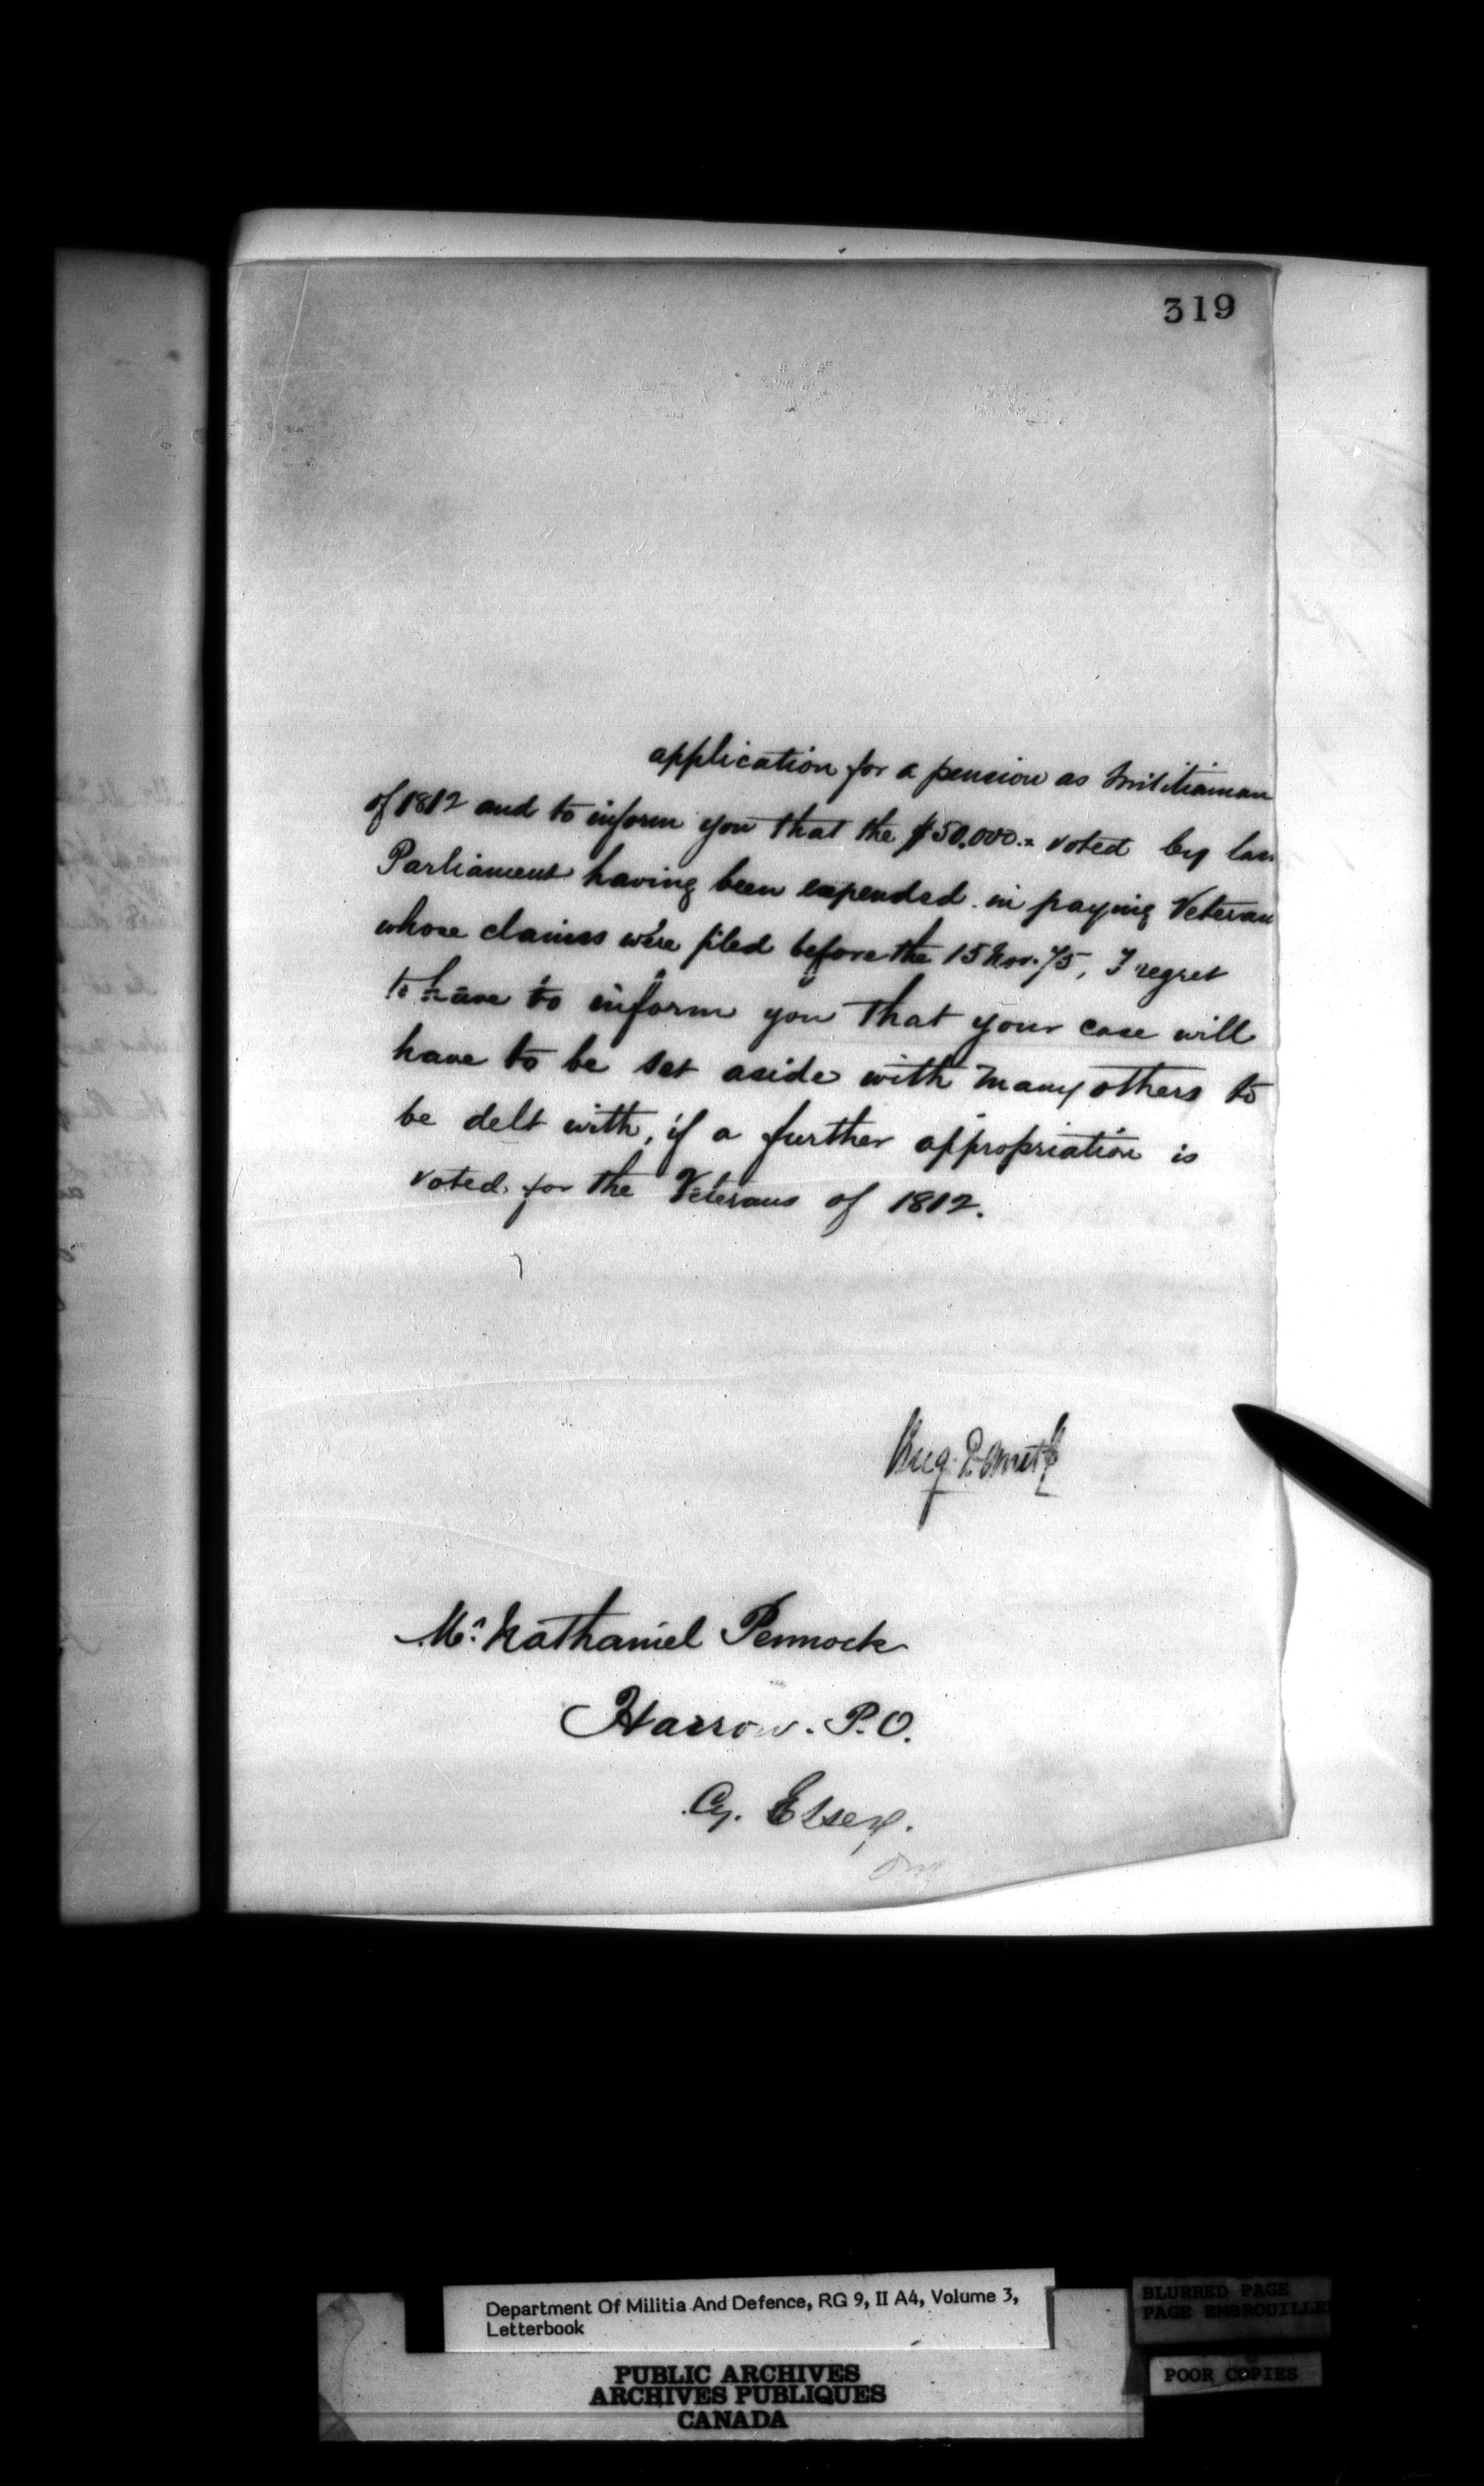 319
application for a pension as Militiaman
of 1812 and to inform you that the $50,000.= voted by las
Parliament having been expended in paying Veteran
whose claims were filed before the 15 Nov. 75, I regret
to have to inform you that your case will
have to be set aside with many others to
be delt with, if a further appropriation is
voted for the Veterans of 1812.
Mr. Nathaniel Pennock
Harrow. P.O.
Cy. Essex.
Ont
Department Of Militia And Defence, RG 9, II A4, Volume 3,
Letterbook
PUBLIC ARCHIVES
ARCHIVES PUBLIQUES
CANADA
BLURRED PAGE
PAGE EMBROUILLE
POOR COPIES